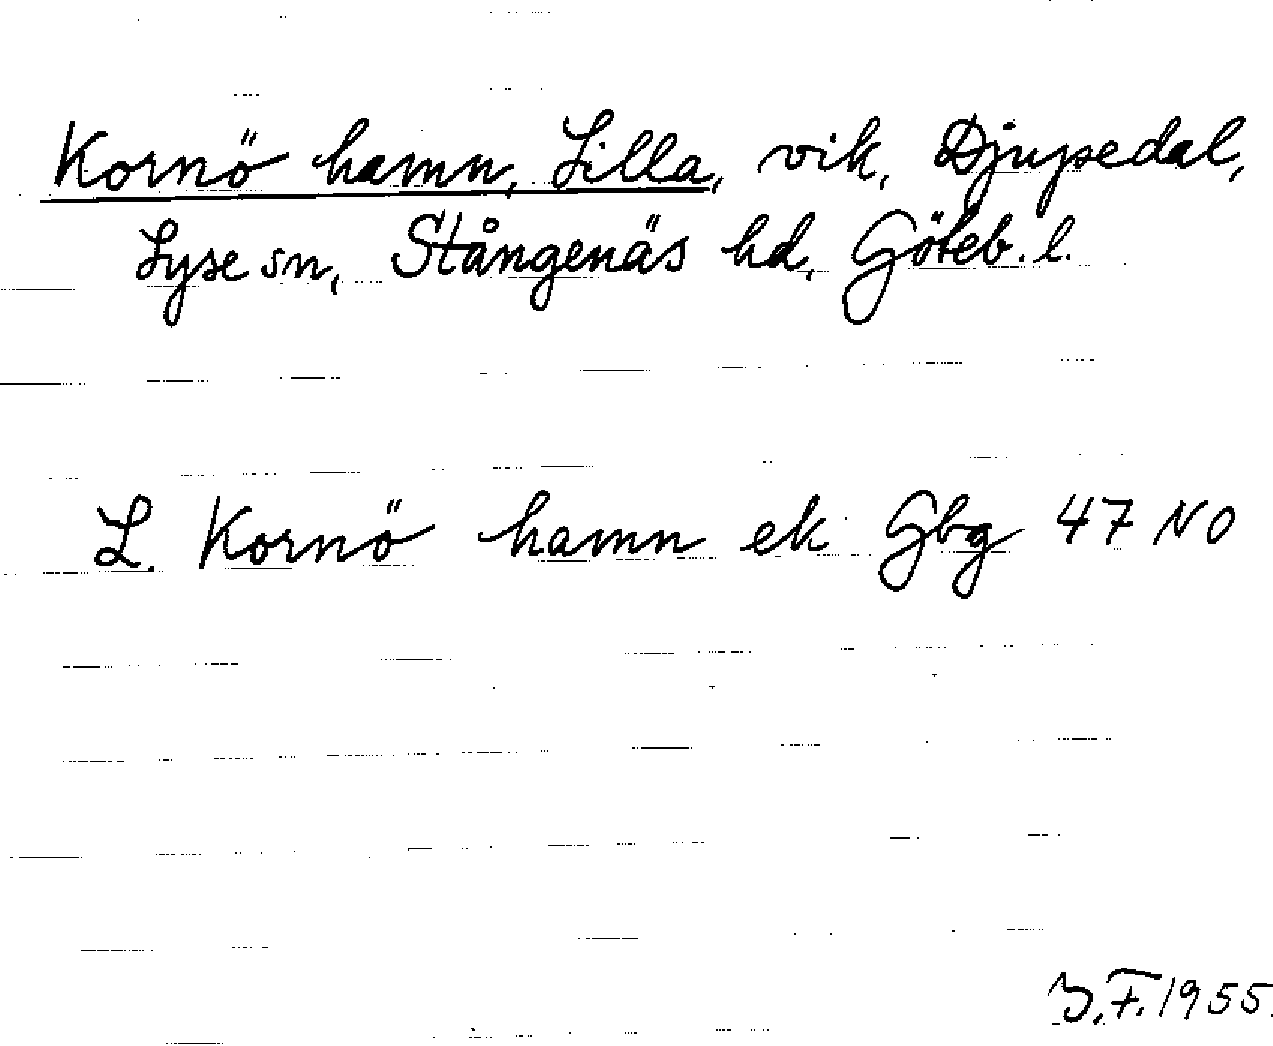 Kornö hamn, Lilla, vik, Djupedal,
Lyse sn, Stångenäs hd, Göteb. l.
L. Kornö hamn ek Gbg 47 NO
J.F. 1955.